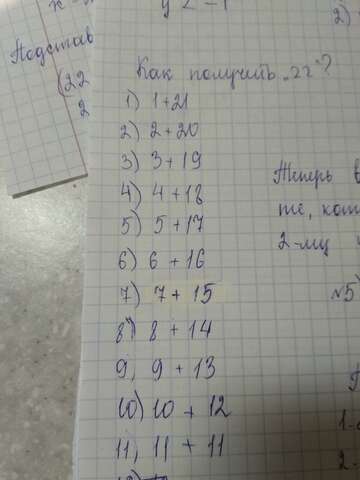 у = -1
2)
Подстав
(22
2
Как получить „22"?
1) 1+21
2) 2+20
3) 3+19
4) 4+18
5) 5+17
6) 6+16
7) 7+15
8) 8+14
9) 9+13
10) 10+12
11) 11+11
Теперь в
те, кот
2-му
№5
1-
2-